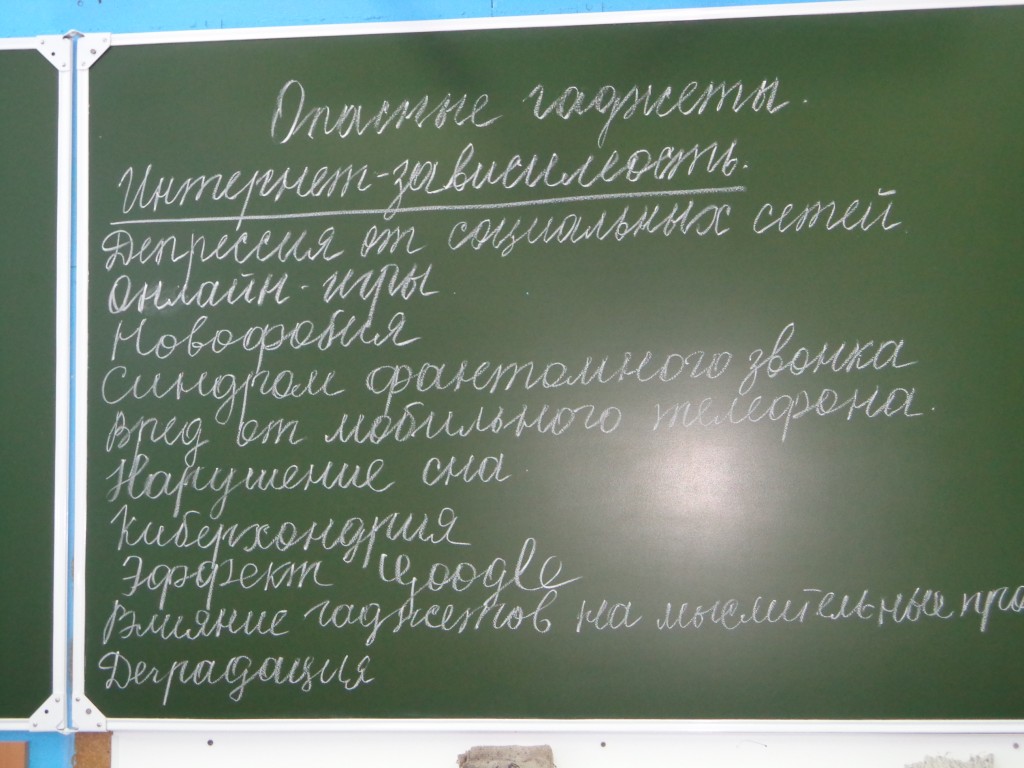 Опасные гаджеты.
Интернет-зависимость.
Депрессия от социальных сетей.
Онлайн-игры
Новофобия
Синдром фантомного звонка
Вред от мобильного телефона.
Нарушение сна
Киберхондрия
Эффект Google
Влияние гаджетов на мыслительные про
Деградация